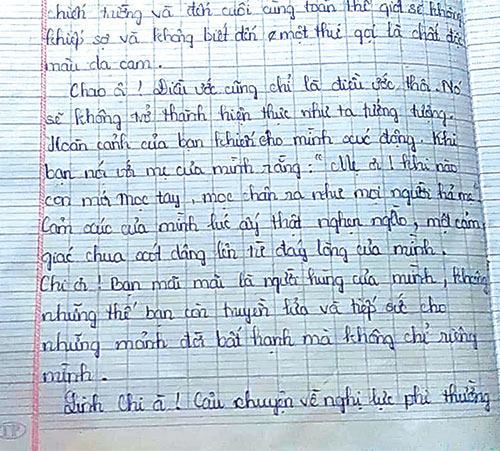 chiến tướng và đến cuối cùng toàn thế giới sẽ không
khiếp sợ và không biết đến một thứ gọi là chất độc
màu da cam.
Chao ôi! Điều ước cũng chỉ là điều ước thôi. Nó
sẽ không trở thành hiện thực như ta tưởng tượng.
Hoàn cảnh của bạn khiến cho mình xúc động. Khi
bạn nói với mẹ của mình rằng: "Mẹ ơi! Khi nào
con mới mọc tay, mọc chân ra như mọi người hả mẹ"
Cảm xúc của mình lúc ấy thật nghẹn ngào, một cảm
giác chua xót dâng lên từ đáy lòng của mình.
Chi à! Bạn mãi mãi là người hùng của mình, không
những thế bạn còn truyền lửa và tiếp sức cho
những mảnh đời bất hạnh mà không chỉ riêng
mình.
Linh Chi à! Câu chuyện về nghị lực phi thường